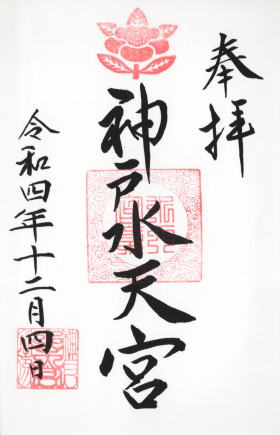 奉拝
神戸水天宮
令和四年十二月四日